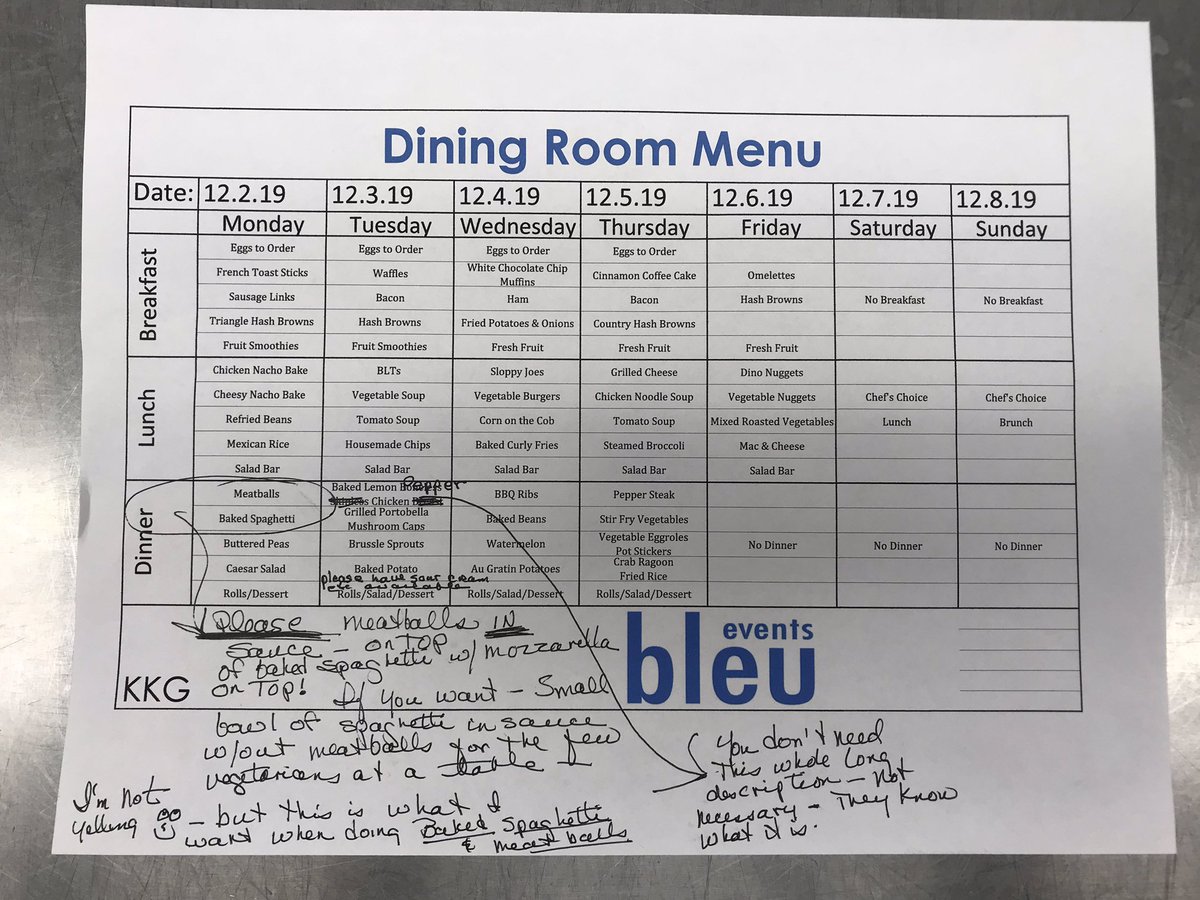 Dining Room Menu
Date: 12.2.19 12.3.19 12.4.19 12.5.19 12.6.19 12.7.19 12.8.19
Monday Tuesday Wednesday Thursday Friday Saturday Sunday
Breakfast
Eggs to Order Eggs to Order Eggs to Order Eggs to Order
French Toast Sticks Waffles White Chocolate Chip Muffins Cinnamon Coffee Cake Omelettes
Sausage Links Bacon Ham Bacon Hash Browns No Breakfast No Breakfast
Triangle Hash Browns Hash Browns Fried Potatoes & Onions Country Hash Browns
Fruit Smoothies Fruit Smoothies Fresh Fruit Fresh Fruit Fresh Fruit
Lunch
Chicken Nacho Bake BLTs Sloppy Joes Grilled Cheese Dino Nuggets
Cheesy Nacho Bake Vegetable Soup Vegetable Burgers Chicken Noodle Soup Vegetable Nuggets Chef's Choice Chef's Choice
Refried Beans Tomato Soup Corn on the Cob Tomato Soup Mixed Roasted Vegetables Lunch Brunch
Mexican Rice Housemade Chips Baked Curly Fries Steamed Broccoli Mac & Cheese
Salad Bar Salad Bar Salad Bar Salad Bar Salad Bar
Dinner
Meatballs Baked Lemon Pepper Chicken BBQ Ribs Pepper Steak
Baked Spaghetti Grilled Portobella Mushroom Caps Baked Beans Stir Fry Vegetables
Buttered Peas Brussle Sprouts Watermelon Vegetable Eggroles Pot Stickers No Dinner No Dinner No Dinner
Caesar Salad Baked Potato Au Gratin Potatoes Crab Ragoon Fried Rice
please have sour cream
available
Rolls/Dessert Rolls/Salad/Dessert Rolls/Salad/Dessert Rolls/Salad/Dessert
KKG
events
bleu
Please meatballs IN
sauce - on TOP
of baked spaghetti w/ mozzarella
on TOP! If you want - Small
bowl of spaghetti in sauce
w/out meatballs for the few
vegetarians at a table
I'm not
yelling - but this is what I
want when doing Baked Spaghetti
& meat balls
You don't need
This whole long
description - Not
necessary - They know
what it is.